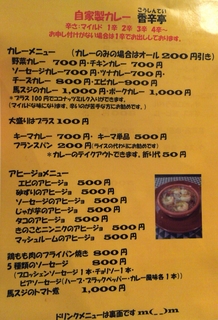 自家製カレー
こうしんてい
香辛亭
辛さ:マイルド 1辛 2辛 3辛 4辛~
お申し付けがない場合は1辛でお出ししております。
カレーメニュー (カレーのみの場合はオール 200円引き)
野菜カレー 700円・チキンカレー 700円
ソーセージカレー700円・ツナカレー 700円
チーズカレー 800円・エビカレー 800円
馬スジのカレー 1,000円・ポークカレー 1,000円
*プラス 100円でココナッツミルク入りができます。
大盛りはプラス 100円
キーマカレー 700円・キーマ単品 500円
フランスパン 200円(ライスの代わりにお勧めです)
*カレーのテイクアウトできます。折り代 50円
アヒージョのメニュー
エビのアヒージョ 500円
砂ずりのアヒージョ 500円
ソーセージのアヒージョ 500円
じゃが芋のアヒージョ 500円
タコのアヒージョ 500円
きのことニンニクのアヒージョ 500円
マッシュルームのアヒージョ 500円
鶏もも肉のフライパン焼き 800円
5種類のソーセージ 800円
(ブロッションソーセージ1本・チョリソー1本
ピアソーセージ(ハーブ・ブラックペッパー・カレー風味各1本))
馬スジのトマト煮 1,000円
ドリンクメニューは裏面です m(__)m